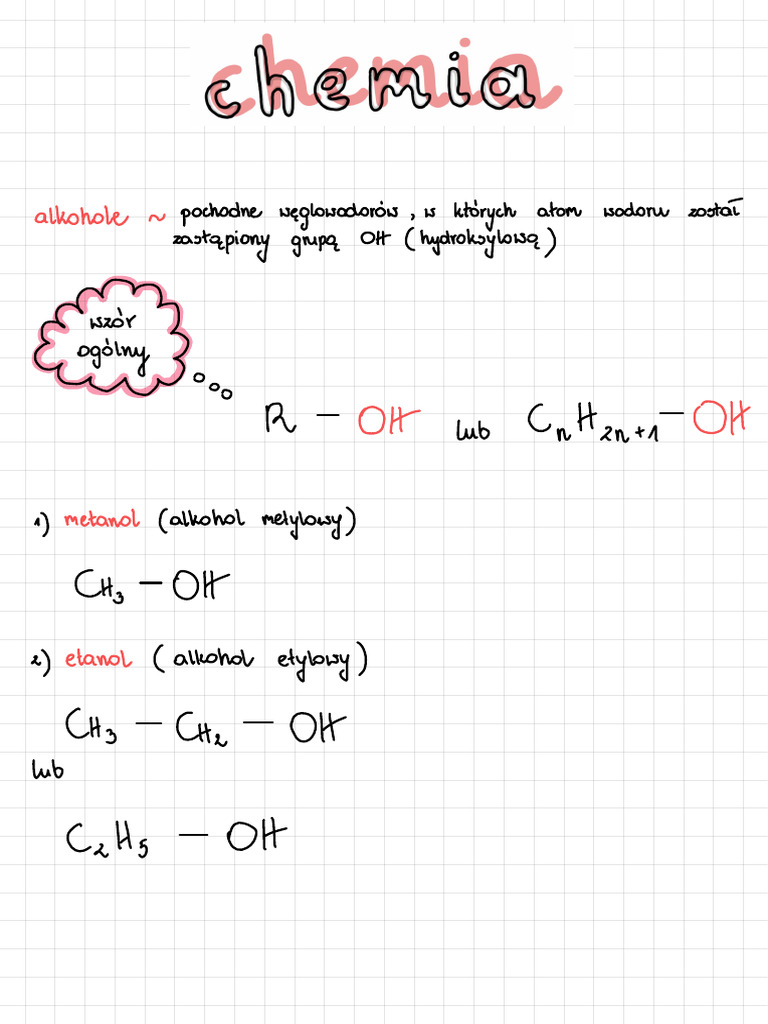 chemia
alkohole ~ pochodne węglowodorów, w których atom wodoru został
zastąpiony grupą OH (hydroksylową)
wzór
ogólny
R — OH lub CₙH₂ₙ₊₁ — OH
1) metanol (alkohol metylowy)
CH₃ — OH
2) etanol (alkohol etylowy)
CH₃ — CH₂ — OH
lub
C₂H₅ — OH